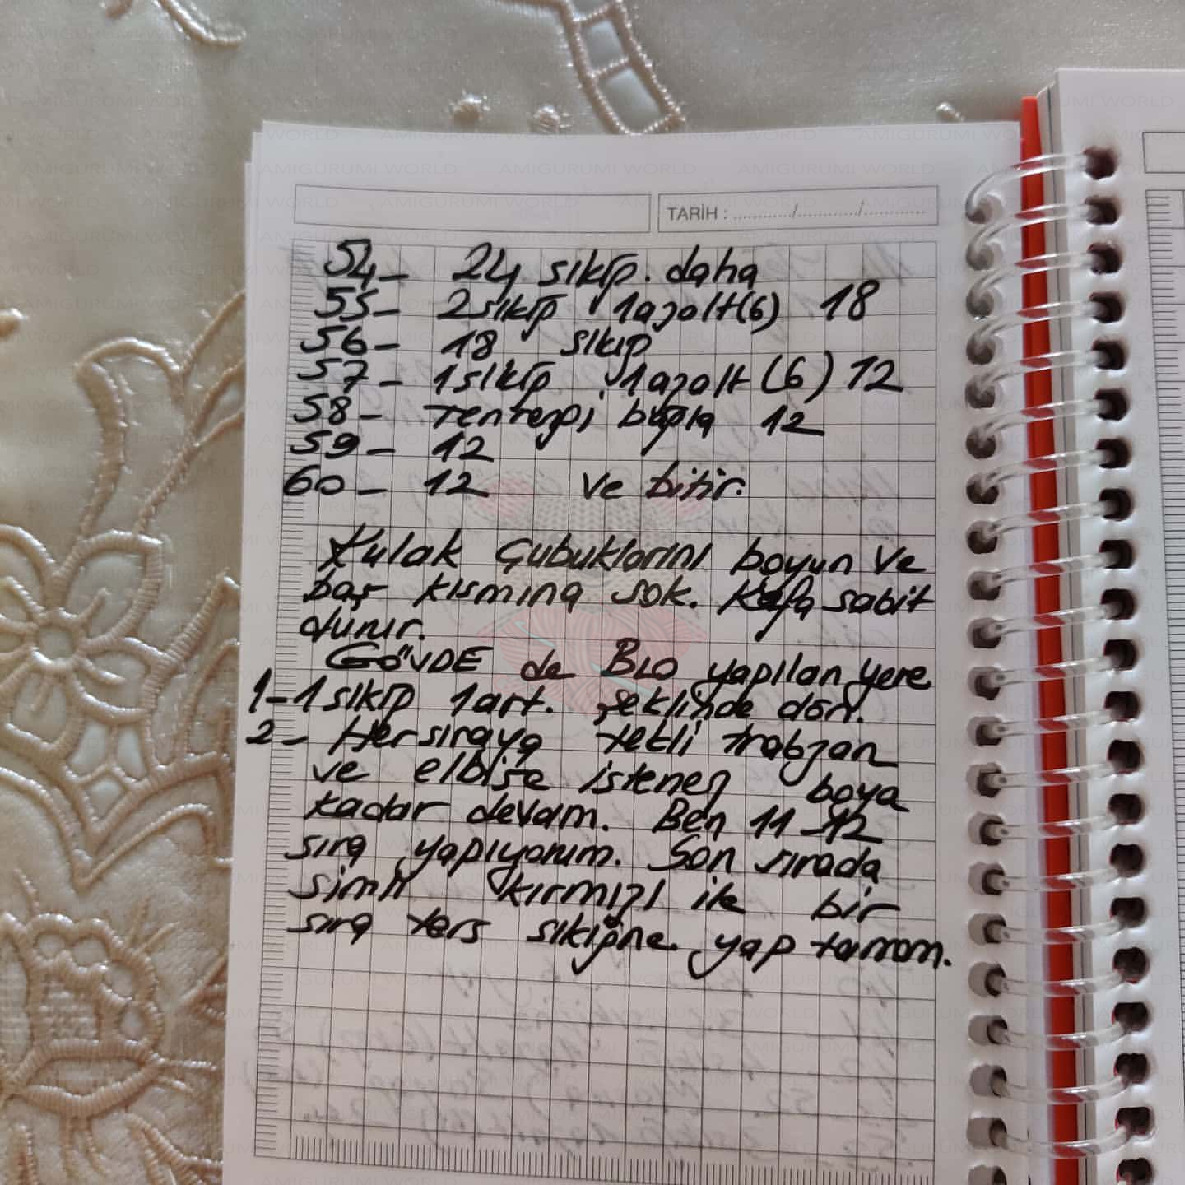 AMIGURUMI WORLD
TARİH : ............/............/............
54- 24 sıkip. daha
55- 2 sıkip 1 azalt (6) 18
56- 18 sıkip
57- 1 sıkip 1 azalt (6) 12
58- 12
59- 12
60- 12 ve bitir.
Kulak Çubuklarını boyun ve
baş kısmına sok. Kafa sabit
durur.
GÖVDE de BLO yapılan yere
1- 1 sıkip 1 art. şeklinde dön.
2- Her sıraya tekli trabzan
ve elbise istenen boya
kadar devam. Ben 11-12
sıra yapıyorum. Son sırada
simli kırmızı ile bir
sıra ters sıkiğne yap tamam.